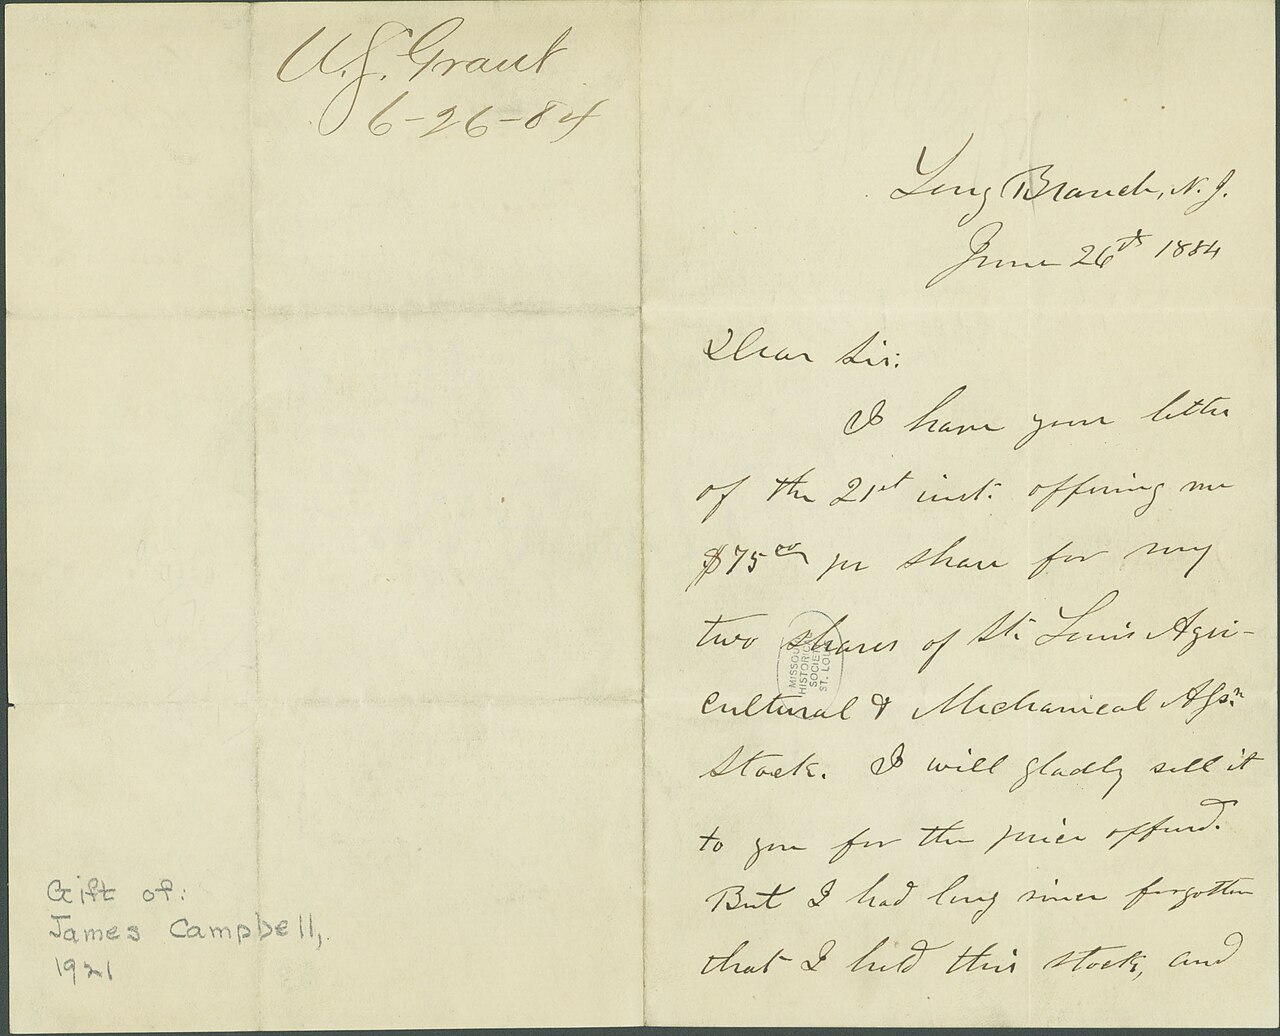 U.S. Grant
6-26-84
Long Branch, N.J.
June 26th 1884
Dear Sir:
I have your letter
of the 21st inst. offering me
$75.00 pr share for my
two shares of St. Louis Agri-
cultural & Mechanical Assn
Stock. I will gladly sell it
to you for the price offered.
But I had long since forgotten
that I held this stock, and
MISSOURI
HISTORICAL
SOCIETY
ST. LOUIS
Gift of:
James Campbell,
1921